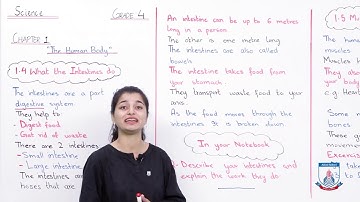 Science
GRADE 4
CHAPTER 1
"The Human Body"
1.4 What the Intestines do
The intestines are a part
digestive system
They help to
- Digest food
- Get rid of waste
There are 2 intestines
- Small intestine
- Large intestine
The intestines are
hoses that are
An intestine can be up to 6 metres
long in a person
The other is one metre long
The intestines are also called
bowels
The intestine takes food from
your stomach
They transport waste food to your
anus.
As the food moves through the
intestines it is broken down
In your Notebook
Q- Describe your intestines and
explain the work they do
1.5 M
The human
muscles
Muscles h
They also
your body
e.g Heart
Some m
bones
These
movement
Exercise
take